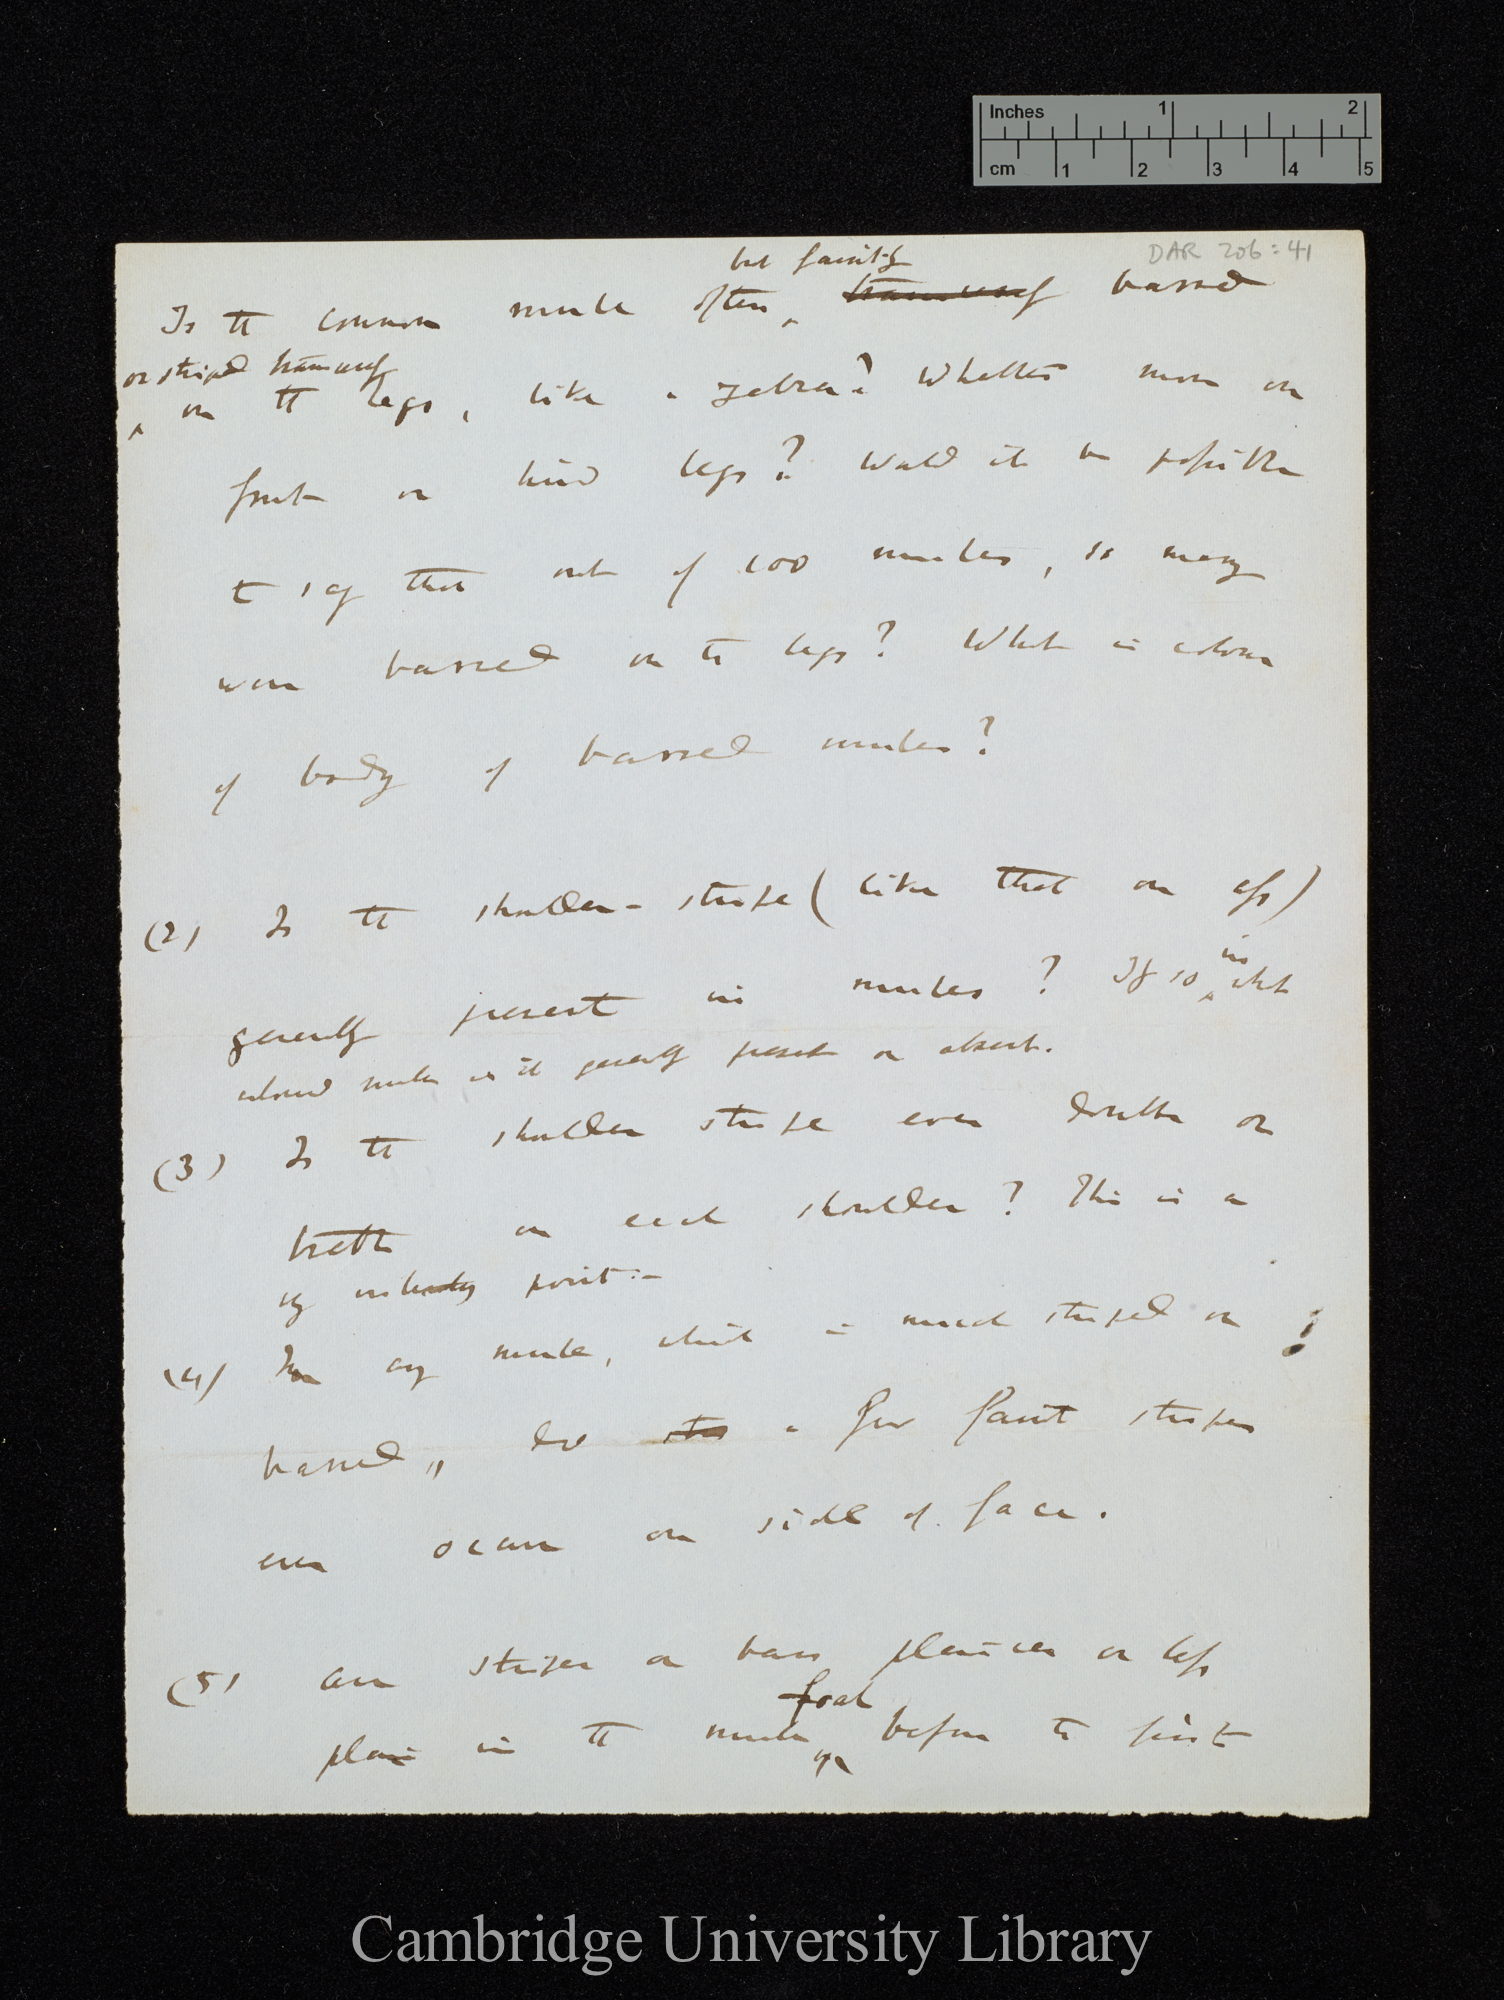 Inches 1 2
cm 1 2 3 4 5
DAR 206:41
but faintly
Is the common mule often, transversely barred
or striped transversely
on the legs, like a zebra? Whether more on
front or hind legs? Would it be possible
to say that out of 100 mules, so many
were barred on the legs? What is colour
of body of barred mules?
(2) Is the shoulder-stripe (like that on ass)
in
generally present in mules? If so what
coloured mules is it generally present or absent.
(3) Is the shoulder stripe ever double or
on each shoulder? This is a
point:—
(4) In any mule, which is much striped or
barred, do a few faint stripes
ever occur on side of face.
(5) Are stripes or bars plainer or less
foal
plain in the mule before the first
Cambridge University Library